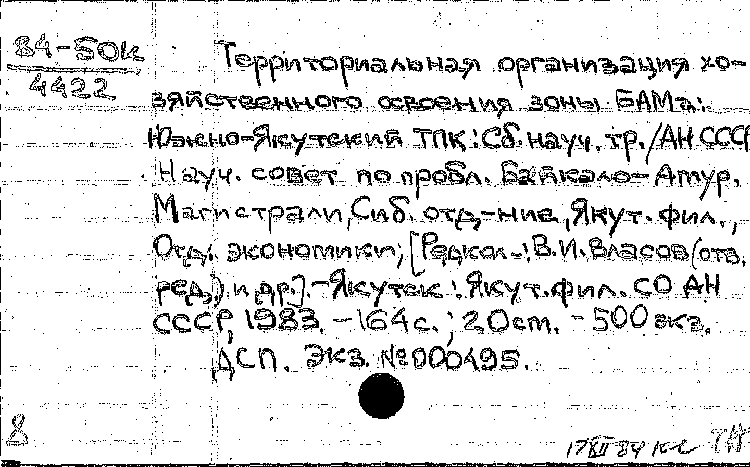 84-50к
4422
Территориальная организация хо-
зяйственного освоения зоны БАМа:
Южно-Якутский ТПК: Сб. науч. тр. / АН СССР
Науч. совет по пробл. Байкало-Амур.
Магистрали, Сиб. отд-ние, Якут. фил.,
Отд. экономики; [Редкол.: В.И. Власов (отв.
ред.) и др.]. - Якутск: Якут. фил. СО АН
СССР, 1983. - 164 с.; 20 cm. - 500 экз.
ДСП. Экз. № 000495.
8
17 XII 84